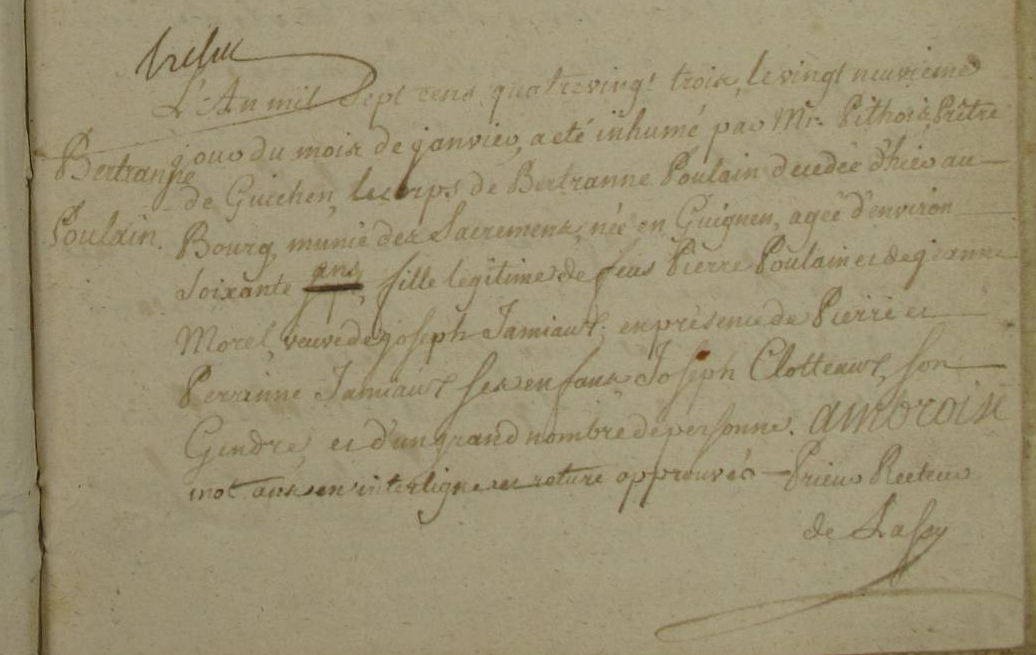 L'An mil sept cens quatrevingt trois, le vingt neuvieme
Bertranne
jour du mois de janvier, a eté inhumé par Mr. Pithois Prêtre
de Guichen, le corps de Bertranne Poulain decedée d'hier au
Poulain.
Bourg, munie des Sacremens, née en Guignen, agée d'environ
soixante ans, fille legitime de feus Pierre Poulain et de jeanne
Morel, veuve de joseph Jamiaut; en présence de Pierre et
Perrinne Jamiaut ses enfans, Joseph Clotteaux, son
Gendre, et d'un grand nombre de personne. ambroise
mot ans en interligne et roture approuvés — Prieur Recteur
de Lassy